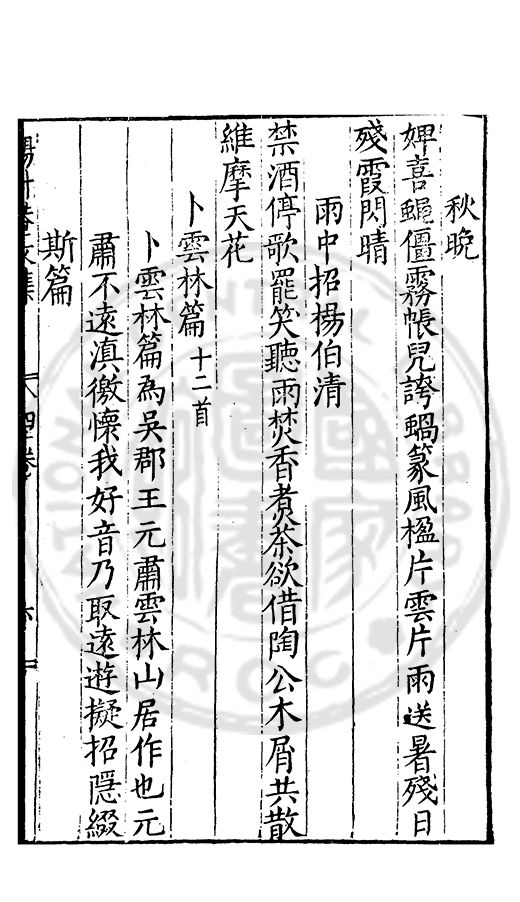 秋晩
婢喜蠅僵霧帳兒誇蝸篆風楹片雲片雨送暑殘日
殘霞閃晴
雨中招楊伯清
禁酒停歌罷笑聽雨焚香煮茶欲借陶公木屑共散
維摩天花
卜雲林篇十二首
卜雲林篇為吳郡王元肅雲林山居作也元
肅不遠滇徼懷我好音乃取遠遊擬招隱綴
斯篇